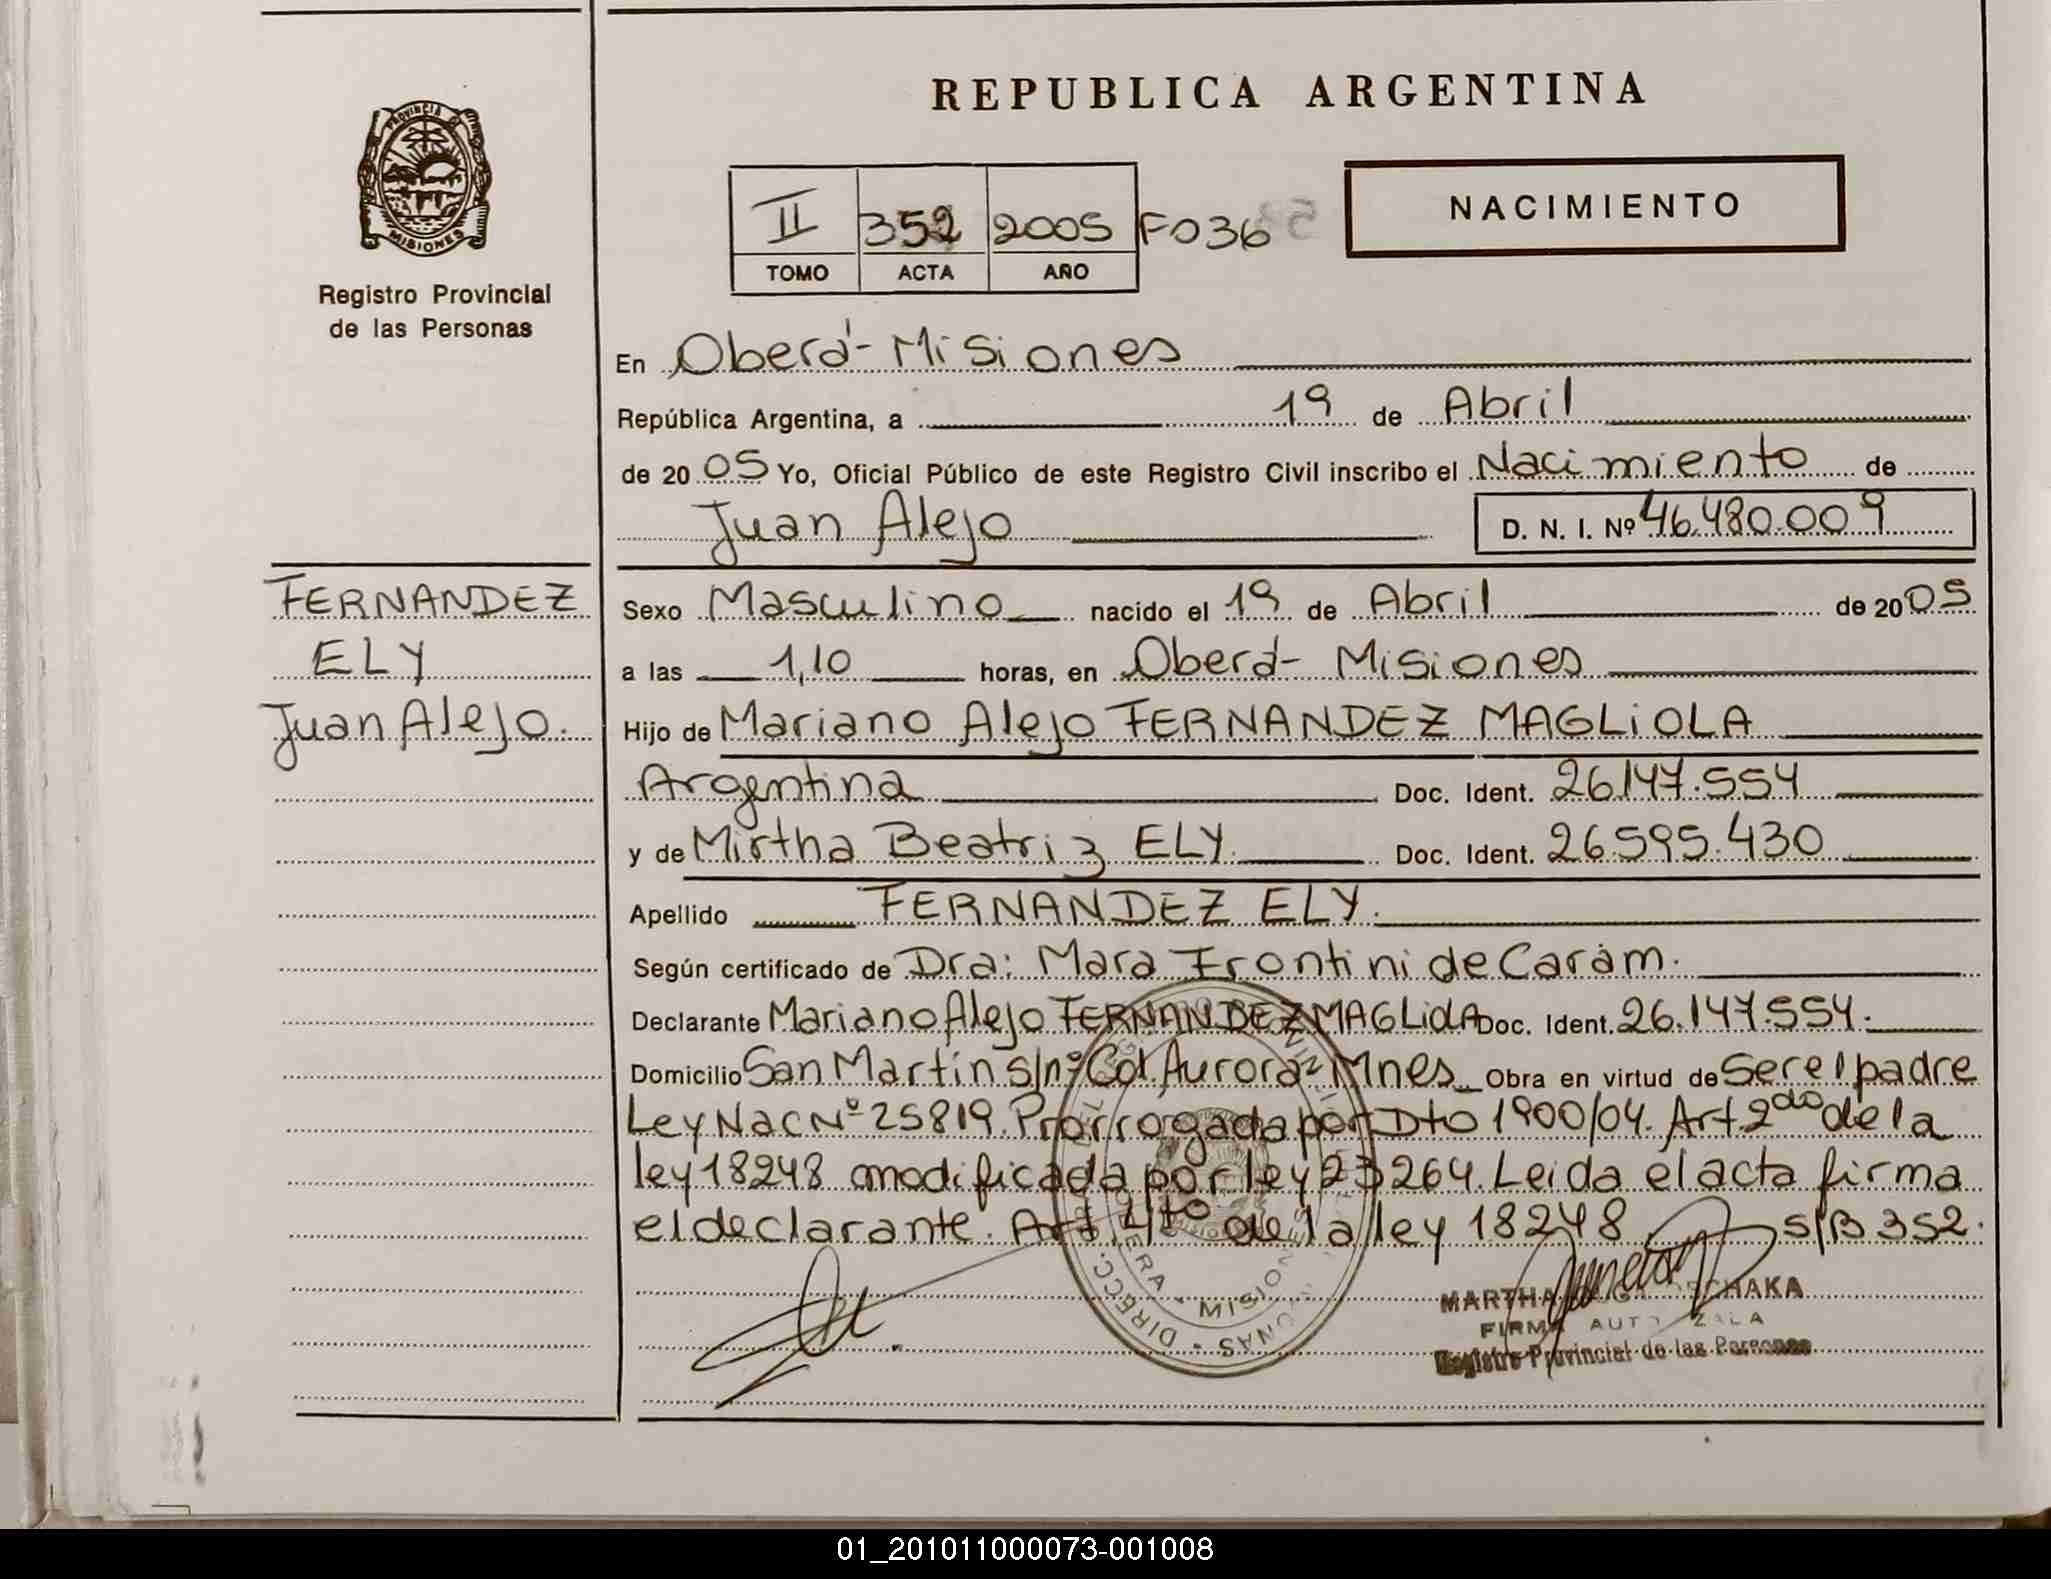 PROVINCIA DE
MISIONES
Registro Provincial
de las Personas
REPUBLICA ARGENTINA
NACIMIENTO
II 352 2005 F036
TOMO ACTA AÑO
En Oberá - Misiones
República Argentina, a 19 de Abril
de 2005 Yo, Oficial Público de este Registro Civil inscribo el Nacimiento de
Juan Alejo D. N. I. Nº 46.480.009
FERNANDEZ
ELY
Juan Alejo.
Sexo Masculino nacido el 19 de Abril de 2005
a las 1,10 horas, en Oberá - Misiones
Hijo de Mariano Alejo FERNANDEZ MAGLIOLA
Argentina Doc. Ident. 26.147.554
y de Mirtha Beatriz ELY. Doc. Ident. 26.595.430
Apellido FERNANDEZ ELY.
Según certificado de Dra: Mara Frontini de Carám.
Declarante Mariano Alejo FERNANDEZ MAGLIOLA Doc. Ident. 26.147.554.
Domicilio San Martín s/nº Col. Aurora - Mnes. Obra en virtud de Ser el padre
Ley Nac Nº 25819. Prorrogada por Dto 1900/04. Art. 2do de la
ley 18248 modificada por ley 23264. Leida el acta firma
el declarante. Art. 4to de la ley 18248 S/B 352.
MARTHA
FIRMA
Registro Provincial de las Personas
DIRECC. MISIONES
01_201011000073-001008